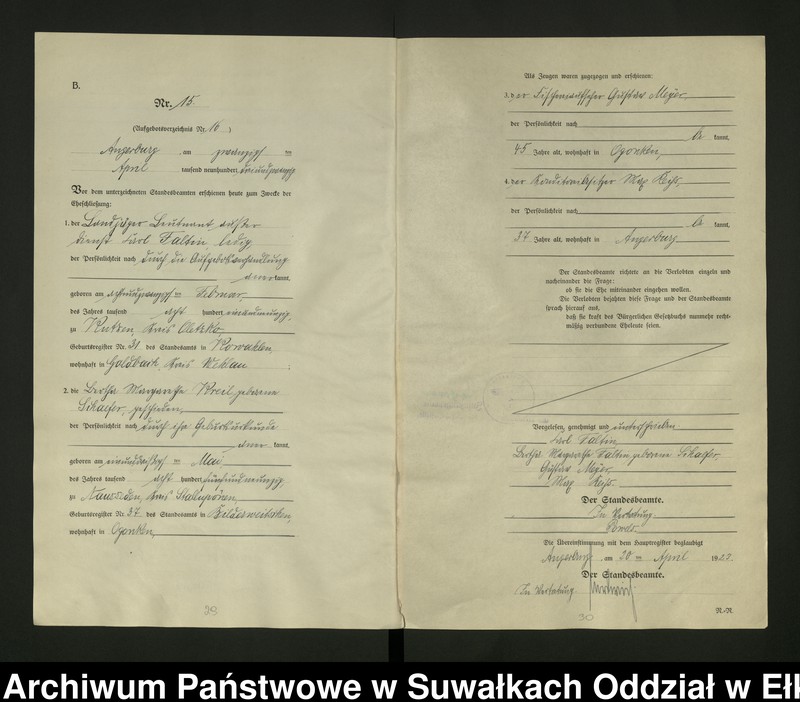 B.
Nr. 15.
(Aufgebotsverzeichnis Nr. 16)
Angerburg am zwanzigsten
April tausend neunhundert dreiundzwanzig
Vor dem unterzeichneten Standesbeamten erschienen heute zum Zwecke der
Eheschließung:
1. der Landjäger Leutnant außer
Dienst Karl Faltin, ledig,
der Persönlichkeit nach durch die Aufgebotsverhandlung
anerkannt,
geboren am achtundzwanzigsten Februar
des Jahres tausend acht hundert einundneunzig,
zu Kutzen, Kreis Oletzko,
Geburtsregister Nr. 31 des Standesamts in Kowahlen,
wohnhaft in Goldbach, Kreis Wehlau
2. die Bertha Margarethe Kreil, geborene
Schaefer, geschieden,
der Persönlichkeit nach durch ihre Geburtsurkunde
anerkannt,
geboren am einunddreißigsten Mai
des Jahres tausend acht hundert fünfundneunzig,
zu Kreis Stallupönen,
Geburtsregister Nr. 37 des Standesamts in
wohnhaft in Ogonken,
29
Als Zeugen waren zugezogen und erschienen:
3. der Gustav Meyer,
der Persönlichkeit nach
be kannt,
45 Jahre alt, wohnhaft in Ogonken,
4. der Konditoreibesitzer Max
der Persönlichkeit nach
be kannt,
37 Jahre alt, wohnhaft in Angerburg.
Der Standesbeamte richtete an die Verlobten einzeln und
nacheinander die Frage:
ob sie die Ehe miteinander eingehen wollen.
Die Verlobten bejahten diese Frage und der Standesbeamte
sprach hierauf aus,
daß sie kraft des Bürgerlichen Gesetzbuchs nunmehr recht-
mäßig verbundene Eheleute seien.
Vorgelesen, genehmigt und unterschrieben
Karl Faltin
Bertha Margarethe Faltin, geborene Schaefer,
Gustav Meyer
Max
Der Standesbeamte.
In Vertretung
Die Übereinstimmung mit dem Hauptregister beglaubigt
Angerburg, am 20 ten April 1923.
Der Standesbeamte.
In Vertretung
30
N.-N
Archiwum Państwowe w Suwałkach Oddział w Ełk